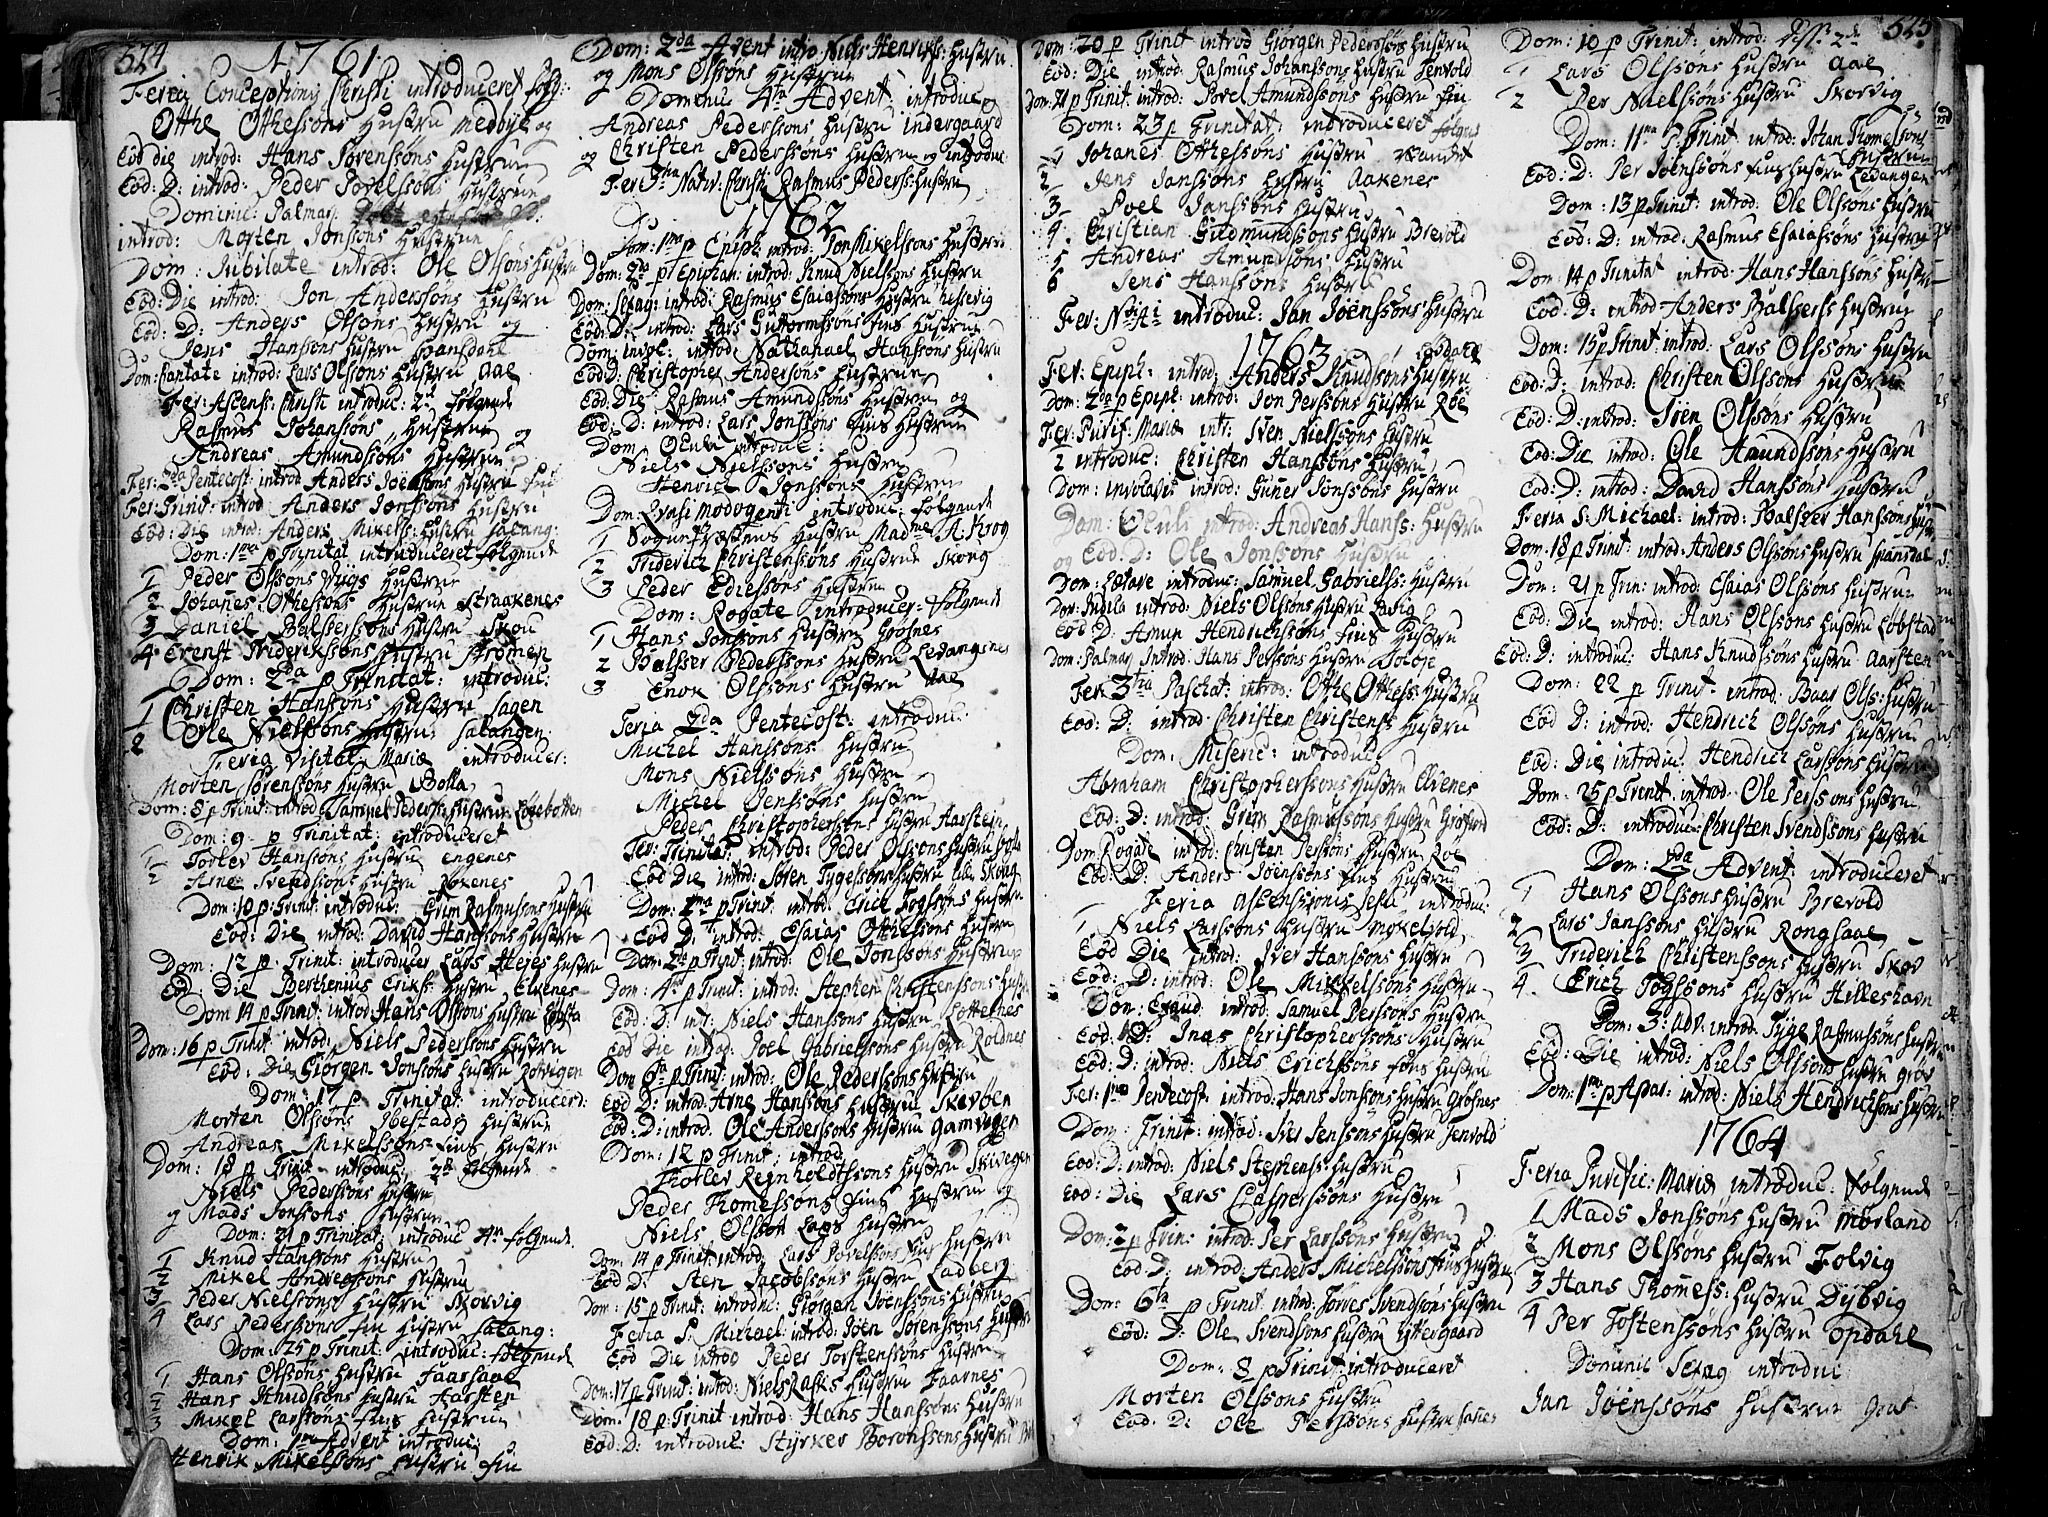 524
1761
Feria Conceptionis Christi introduceret følg:
Otthe Otthessøns Hustru Nedbye og
Eod Die introd: Hans Sørenssøns Hustrue
Eod: D: introd: Peder Povelssøns Hustrue
Dominic: Palmar:
introd: Morten Jonssøns Hustrue
Dom: Jubilate introd: Ole Olsøns Hustru
Eod: Die introd: Jon Anderssøns Hustru
Eod: D: Anders Olsøns Hustru og
Jens Hanssøns Hustru Spansdahl
Dom: Cantate introd: Lars Olssøns Hustru Aae
Fer: Ascens: Christi introduc: 2de følgende
Rasmus Johanssøns Hustrue og
Andreas Amundssøns Hustrue
Fer: 2da Pentecost: introd Anders Joenssøns Hustru Fin
Fer: Trinit: introd Anders Jonssøns Hustru
Eod: Die introd: Anders Mikelss: Hustru Salang:
Dom: 1ma p Trinitat introduceret følgende
1 Peder Olssøns Hustrue
2 Johanes Othessøns Hustrue Straakenes
3 Daniel Balssersøns Hustru Skou
4 Ernst Friderikssøns Hustru Strømen
Dom: 2da p Trinitat: introduc:
1 Christen Hansøns Hustrue Sagen
2 Ole Nielssøns Hustrue Salangen
Feria Visitat: Mariæ introducer:
Morten Sørenssøns Hustru Bolla
Dom: 8 p Trinit: introd Samuel Pederss: Hustrue Løgebotten
Dom: 9 p Trinitat: introduceret
1 Torlev Hanssøns Hustru Engenes
2 Arne Svendssøns Hustru Røkenes
Dom: 10 p: Trinit: introduc: Grim Rasmussøns Hustru
Eod: Die introd: David Hanssøns Hustrue
Dom: 12 p. Trinit: introducer Lars Heies Hustru
Eod: Die Berthenius Erikss: Hustru Elvenes
Dom 14 p Trinit: introd: Hans Olssøns Hustru Løbsta
Dom: 16 p Trinit: introd: Niels Pederssøns Hustru
Eod: Die Giørgen Jonssøns Hustru Rotvigen
Dom: 17 p Trinitat: introducerd:
Morten Olssøns Ibestads Hustrue
Andreas Mikelssøns Fins Hustru
Dom: 18 p Trinit introduc: 2de følgende
Niels Pederssøns Hustru
og Mads Jonssøns Hustrue
Dom: 21 p Trinitat: introduc 4re følgende
1 Knud Hanssøns Hustru
2 Mikel Andreassøns Hustru
3 Peder Nielssøns Hustru Skorvig
4 Lars Pederssøns Fin Hustru Salang:
Dom: 25 p Trinit: introduc: følgende
1 Hans Olssøns Hustru Faarsaae
2 Hans Knudssøns Hustru Aarsten
3 Mikel Larssøns Fins Hustrue
Dom: 1ma Advent introduc:
Henrik Mikelssøns Hustru Fin
Dom: 2da Advent introd Niels Henrikss: Hustrue
og Mons Olssøns Hustrue
Dominic 4ta Advent: introduc
Andreas Pederssøns Hustru Indergaard
og Christen Pederssøns Hustrue og introduc:
Fer 3tia Nativ: Christi Rasmus Pederss: Hustru
1762
Dom: 1ma p Epiph: introd: Jon Mikelssøns Hustrue
Dom: 2da p Epiphan: introd: Knud Nielssøns Hustru
Dom: Septag: introd: Rasmus Esaiassøns Hustru Hessevig
Eod: D: introd: Lars Guttormssøns Fins Hustrue
Dom: invoc: introd Nathanael Hanssøns Hustru
Eod: D: Christopher Anderssøns Hustrue
Eod: Die: Rasmus Amundssøns Hustrue og
Eod: D: introd: Lars Jonssøns Fins Hustrue
Dom: Oculi introduc:
Niels Nielssøns Hustru
Henrich Jonssøns Hustrue
Dom: Qvasimodogenti introduc: følgende
1 Sogne Præstens Hustru Madme A: Krog
2 Friderich Christenssøns Hustrue Skoug
3 Peder Ediessøns Hustru
Dom: Rogate introducer: følgende
1 Hans Jonssøns Hustru Grøsnes
2 Balsser Pederssøns Hustru Ledangsnes
3 Enok Olssøns Hustru Aae
Feria 2da Pentecost: introduc:
Michel Hanssøns Hustru
Mons Nielssøns Hustru
Michel Jenssøns Hustru
Peder Christopherssøns Hustru Aarstein
Fer: Trinitat: introd: Peder Olssøns Hustru
Eod Die introd: Søren Tygessøns Hustru Lille Skoug
Dom: 1ma p Trinit: introd: Erich Togssøns Hustru
Eod D: introd: Esaias Otthessøns Hustru
Dom: 2da p Trinit: introd: Ole Jonssøns Hustrue
Dom: 4ta p Trinit: introd: Stephen Christenssøns Hustr:
Eod: D: int: Niels Hanssøns Hustru Sottenes
Eod Die introd: Joel Gabrielssøns Hustru Roldnes
Dom 6ta p Trinit: introd: Ole Pederssøns Hustru
Eod D: introd: Arne Hanssøns Hustru Skevøen
Eod: D: introd: Ole Anderssøns Hustru Gamvigen
Dom: 12 p Trinit: introd
Thorlev Reinholdtssøns Hustru Skevigen
Peder Thomessøns Fins Hustrue og
Niels Olssøn Laps Hustru
Dom: 14 p Trinit: introd: Lars Povelssøns Fins Hustru
Eod D: Sten Jacobssøns Hustru Ladberg
Dom: 15 p Trinit: introduc: Giørgen Joenssøns Hustru
Feria S: Michael: introd: Joen Sørenssøns Hustru
Eod Die introd Peder Torstenssøns Hustru
Dom: 17 p Trinit: introd: Niels Rasks Hustru Faarnes
Dom: 18 p: Trinit introd: Hans Hanssøns Hustru
Eod: D: introduc: Styrker Boronssøns Hustru
Dom: 20 p Trinit introd Giørgen Pederssøns Hustru
Eod: Die introd: Rasmus Johanssøns Hustru Tenvold
Dom: 21 p Trinit: introd: Povel Amundssøns Hustru Fin
Dom: 23 p Trinitat: introduceret følgende
1 Johanes Otthessøns Hustru Vandet
2 Jens Janssøns Hustru Aakenes
3 Poel Janssøns Hustru
4 Christian Gudmundssøns Hustru Brevold
5 Andreas Amundsøns Hustru
6 Jens Hanssøns Hustru
Fer: Nov: Ai introduc: Jan Joenssøns Hustru
1763
Fer: Epiph: introd: Anders Knudssøns Hustru
Dom: 2da p Epiph: introd: Jon Perssøns Hustru Roe
Fer: Purif: Mariæ intr: Sven Nielssøns Hustru
2 introduc: Christen Hanssøns Hustru
Dom: Involavit introd: Guner Jonssøns Hustru
Dom: Oculi introd: Andreas Hanss: Hustru
og Eod: D: Ole Jonssøns Hustru
Dom: Lætare introduc: Samuel Gabrielss: Hustru
Dom: Judica introd: Niels Olssøns Hustru Lavig
Eod D: Amun Hendrichssøns Fins Hustru
Dom: Palmar Introd: Hans Perssøns Hustru Solbje
Fer: 3tia Paschat: introd: Otthe Otthess: Hustru
Eod: D: introd: Christen Christenss Hustru
Dom: Miseric: introduc:
Abraham Christopherssøns Hustru Elvenes
Eod: D: introd: Grim Rasmussøns Hustru
Dom: Rogate introd: Christen Perssøns Hustru Roe
Eod: D: Anders Joenssøns Fins Hustru
Feria Ascensionis Jesu introduc:
1 Niels Larssøns Hustru Mykelvold
Eod Die introd: Iver Hanssøns Hustru
Eod: D: introd: Ole Mikkelssøns Hustru
Dom: Exaud introd: Samuel Perssøns Hustru
Eod: D: Inas Christopherssøns Hustru
Eod: D: introd: Niels Erichssøns Føns Hustru
Fer: 1ma Pentecost: introd: Hans Jonssøns Hustru Grøsnes
Dom: Trinit: introd: Iver Jenssøns Hustru Tenvold
Eod: D: introd: Niels Stephenss: Hustru
Eod: Die Lars Casperssøns Hustru
Dom: 2 p Trin: introd: Per Larssøns Hustru
Eod: D: introd: Anders Michelssøns Fins Hustru
Dom: 6ta p Trinit: introd: Torres Svendssøns Hustru
Eod: D: Ole Svendssøns Hustru Yttergaard
Dom: 8 p Trinit: introduceret
Morten Olssøns Hustru
Eod: D: Ole Perssøns Hustru
525
Dom: 10 p Trinit: introd: 2de
1 Lars Olssøns Hustru Aae
2 Per Nielssøns Hustru Skorvig
Dom: 11ma p: Trinit introd: Johan Thomessøns
Hustrue
Eod: D: Per Joenssøns Fins Hustru Ledangen
Dom: 13 p Trinit: introd: Ole Olssøns Hustru
Eod: D: introd: Rasmus Esaiassøns Hustru
Dom: 14 p Trinitat introd: Hans Hanssøns Hustr
Eod: D: introd Anders Balsserss Hustrue
Dom: 15 p Trinit: introd: Lars Olssøns Hustru
Eod: D: introd: Christen Olssøns Hustrue
Eod: D: introd: Sven Olssøns Hustru
Eod: Die introd: Ole Amundssøns Hustru
Eod: D: introd: David Hanssøns Hustru
Feria S: Michael: introd: Balsser Hanssøns Hustr
Dom: 18 p Trinit: introd: Anders Olssøns Hustru Spansdal
Dom: 21 p Trin: introd: Esaias Olssøns Hustrue
Eod: Die introd: Hans Olssøns Hustru Løbstad
Eod: D: introduc: Hans Knudssøns Hustru Aarsten
Dom: 22 p Trinit: introd: Baar Olss: Hustru
Eod D: introd: Hendrich Olssøns Hustru
Eod: Die introduc: Hendrich Larssøns Hustru
Dom: 25 p Trinit: introd: Ole Perssøns Hustru
Eod: D: introduc: Christen Svendssøns Hustru
Dom: 2da Advent: introduceret
1 Hans Olssøns Hustru Brevold
2 Lars Janssøns Hustru Rongsaae
3 Friderich Christenssøns Hustru Skov
4 Erich Togssøns Hustru Hilleshavn
Dom: 3: Adv: introd: Tyge Rasmussøns Hustru
Eod: Die introd: Niels Olssøns Hustru Grøs
Dom: introd: Niels Hendrichsøns Hustru
1764
Feria Purific: Mariæ introduc: følgende
1 Mads Jonssøns Hustru Mørland
2 Mons Olssøns Hustru Følvig
3 Hans Thomess: Hustru Dybvig
4 Per Tostenssøns Hustru Opdahl
Dominic Septag introduc
Jan Joenssøns Hustrue